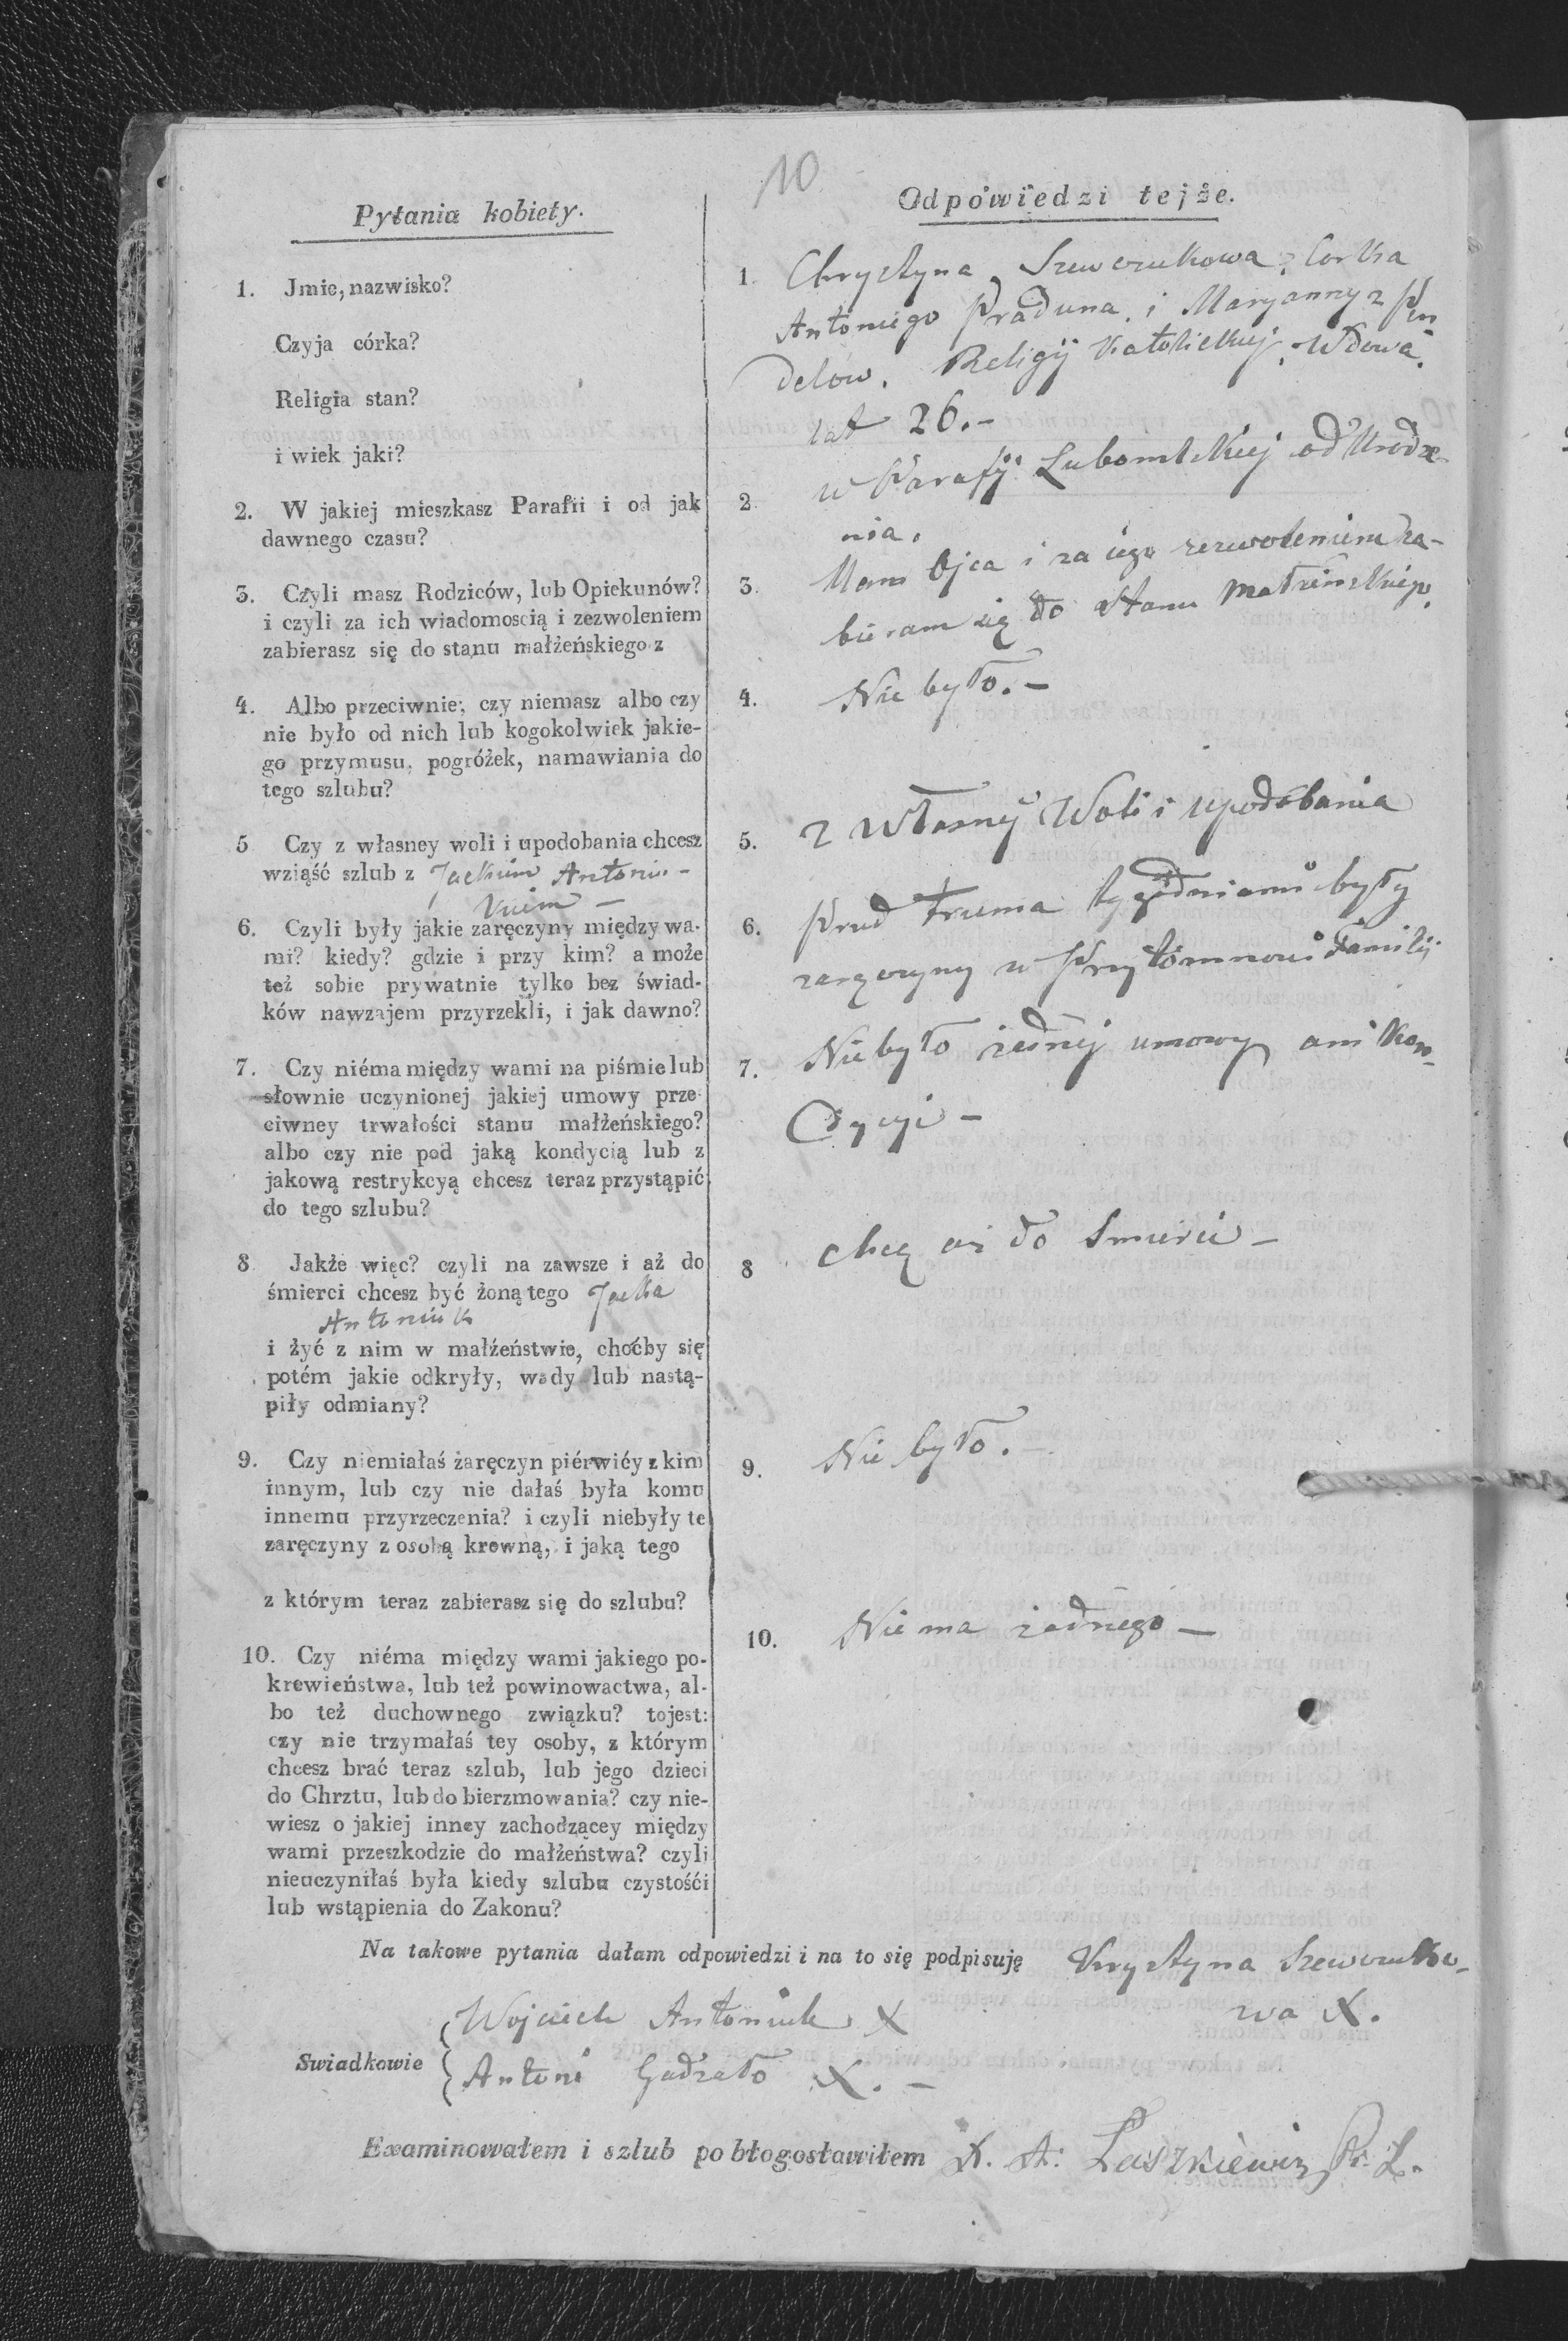 10
Pytania kobiety.
1. Jmie, nazwisko?
Czyja córka?
Religia stan?
i wiek jaki?
2. W jakiej mieszkasz Parafii i od jak
dawnego czasu?
3. Czyli masz Rodziców, lub Opiekunów?
i czyli za ich wiadomoscią i zezwoleniem
zabierasz się do stanu małżeńskiego z
4. Albo przeciwnie; czy niemasz albo czy
nie było od nich lub kogokolwiek jakie-
go przymusu, pogróżek, namawiania do
tego szlubu?
5 Czy z własney woli i upodobania chcesz
wziąść szlub z Jackiem Antoniu-
kiem —
6. Czyli były jakie zaręczyny między wa-
mi? kiedy? gdzie i przy kim? a może
też sobie prywatnie tylko bez świad-
ków nawzajem przyrzekli, i jak dawno?
7. Czy niéma między wami na piśmie lub
słownie uczynionej jakiej umowy prze-
ciwney trwałości stanu małżeńskiego?
albo czy nie pod jaką kondycią lub z
jakową restrykcyą chcesz teraz przystąpić
do tego szlubu?
8 Jakże więc? czyli na zawsze i aż do
śmierci chcesz być żoną tego Jacka
Antoniuk
i żyć z nim w małżeństwie, choćby się
potém jakie odkryły, wady lub nastą-
piły odmiany?
9. Czy niemiałaś żaręczyn piérwiéy z kim
innym, lub czy nie dałaś była komu
innemu przyrzeczenia? i czyli niebyły te
zaręczyny z osobą krewną, i jaką tego
z którym teraz zabierasz się do szlubu?
10. Czy niéma między wami jakiego po-
krewieństwa, lub też powinowactwa, al-
bo też duchownego związku? tojest:
czy nie trzymałaś tey osoby, z którym
chcesz brać teraz szlub, lub jego dzieci
do Chrztu, lub do bierzmowania? czy nie-
wiesz o jakiej inney zachodzącey między
wami przeszkodzie do małżeństwa? czyli
nieuczyniłaś była kiedy szlubu czystośći
lub wstąpienia do Zakonu?
Odpówiedzi tejże.
1. Chrystyna Szewczukowa, Corka
Antoniego Praduna, i Maryanny z Pen
delow. Religij Katolickiej, Wdowa.
lat 26.-
2. w Parafij Lubomlskiej od Urodze-
nia.
3. Mam Ojca i za iego zezwoleniem za-
bieram się do stanu Małzeńskiego.
4. Nie było. —
5. z własnej Woli i upodobania
6. Przed trzema tygodniami były
zaręczyny w Przytomnosci Familij
7. Niebyło żednej umowy ani Kon-
dycyi —
8 chcę aż do Smierci —
9. Nie było. —
10. Nie ma żadnego —
Na takowe pytania dałam odpowiedzi i na to się podpisuję Krystyna Szewczuko-
wa X.
Swiadkowie
Wojciech Antoniuk X
Antoni Gadzało X. —
Examinowałem i szlub pobłogosławiłem X. A: Laszkiewicz Pr: L.